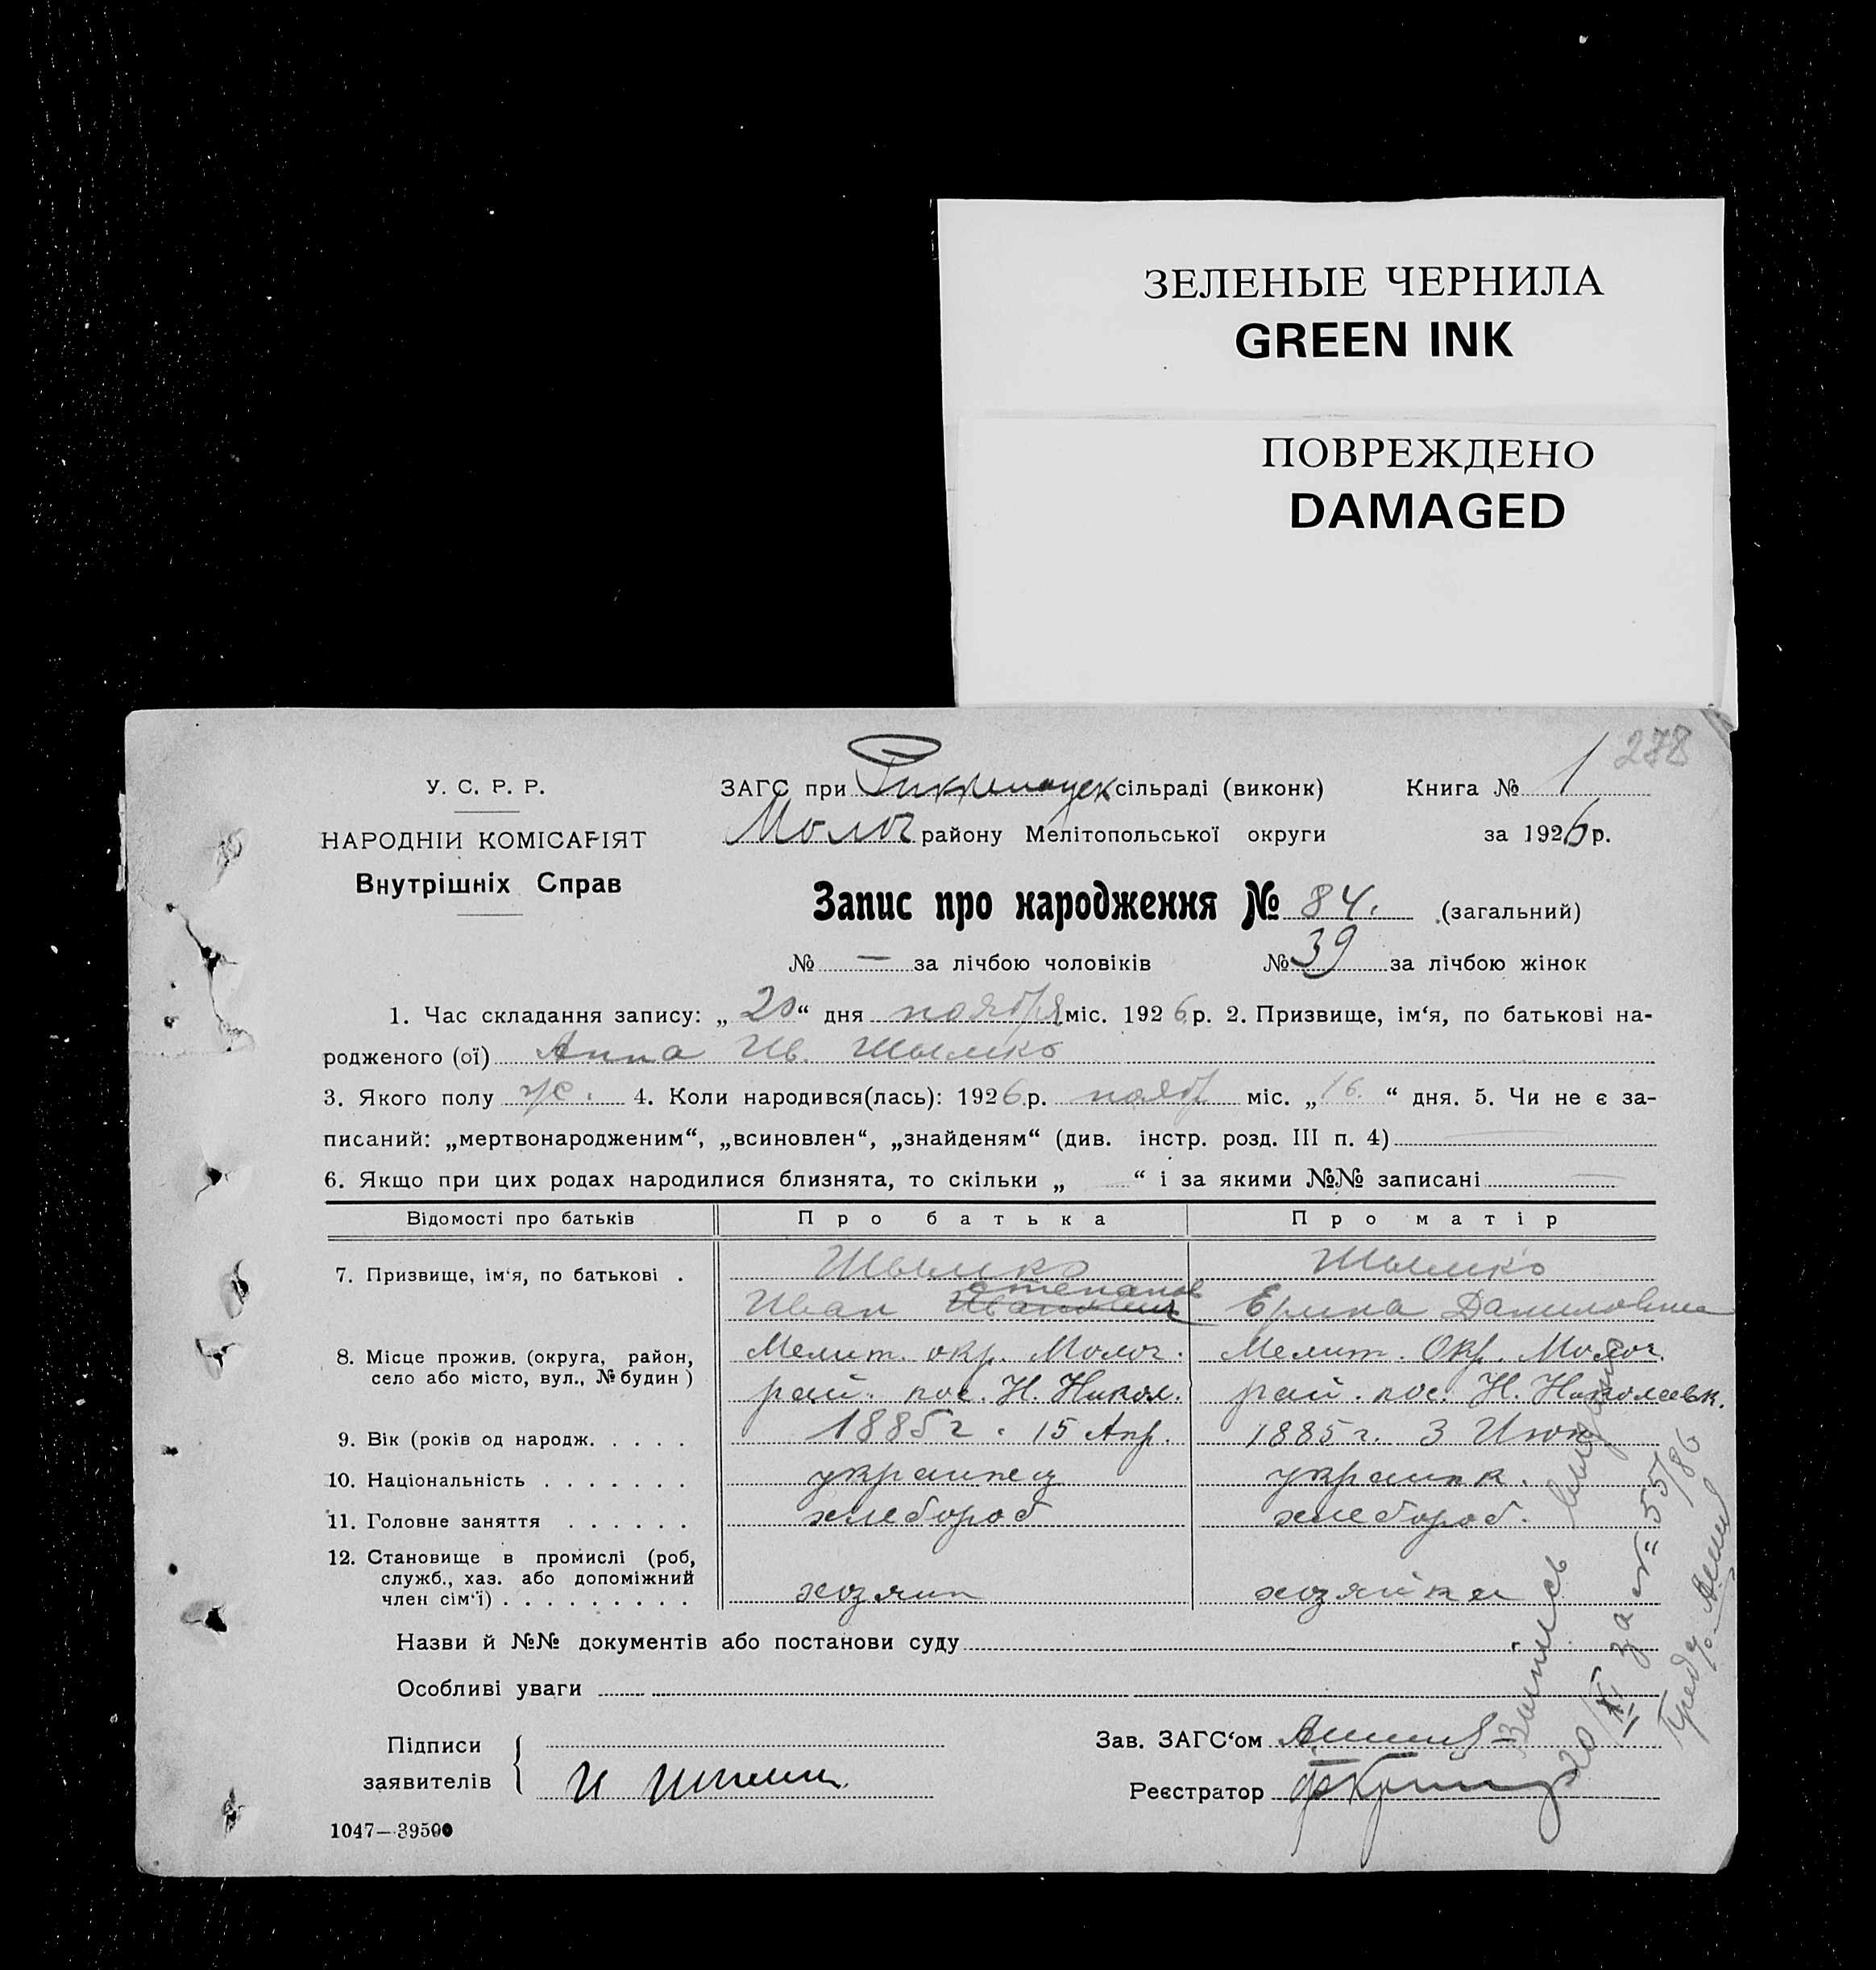 ЗЕЛЕНЫЕ ЧЕРНИЛА
GREEN INK
ПОВРЕЖДЕНО
DAMAGED
278
У. С. Р. Р.
НАРОДНІЙ КОМІСАРІЯТ
Внутрішніх Справ
ЗАГС при сільраді (виконк)
Молоч району Мелітопольської округи
Книга № 1
за 1926 р.
Запис про народження № 84. (загальний)
№ — за лічбою чоловіків № 39 за лічбою жінок
1. Час складання запису: „20“ дня ноября міс. 1926 р. 2. Призвище, ім‘я, по батькові на-
родженого (ої) Анна Ив. Шымко
3. Якого полу ж. 4. Коли народився(лась): 1926 р. нояб міс. „16.“ дня. 5. Чи не є за-
писаний: „мертвонародженим“, „всиновлен“, „знайденям“ (див. інстр. розд. III п. 4) —
6. Якщо при цих родах народилися близнята, то скільки „ “ і за якими №№ записані —
Відомості про батьків Про батька Про матір
7. Призвище, ім‘я, по батькові . Шымко Шымко
Степанов
Иван Иванович Ерина Даниловна
8. Місце прожив. (округа, район, село або місто, вул., № будин) Мелит. окр. Молоч. Мелит. Окр. Молоч.
рай. пос. Н. Никол. рай. пос. Н. Николаевк.
9. Вік (років од народж. . . . . 1885 г. 15 Апр. 1885 г. 3 Июн
10. Національність . . . . . . . украинец украинк.
11. Головне заняття . . . . . . хлебороб хлебороб.
12. Становище в промислі (роб, служб., хаз. або допоміжний член сім‘ї) . . . . . . . . . хозяин хозяйка
Назви й №№ документів або постанови суду
Особливі уваги
Підписи
заявителів
Зав. ЗАГС‘ом
Реєстратор
1047—39500
Выпись выдана
20/XI за № 55/86